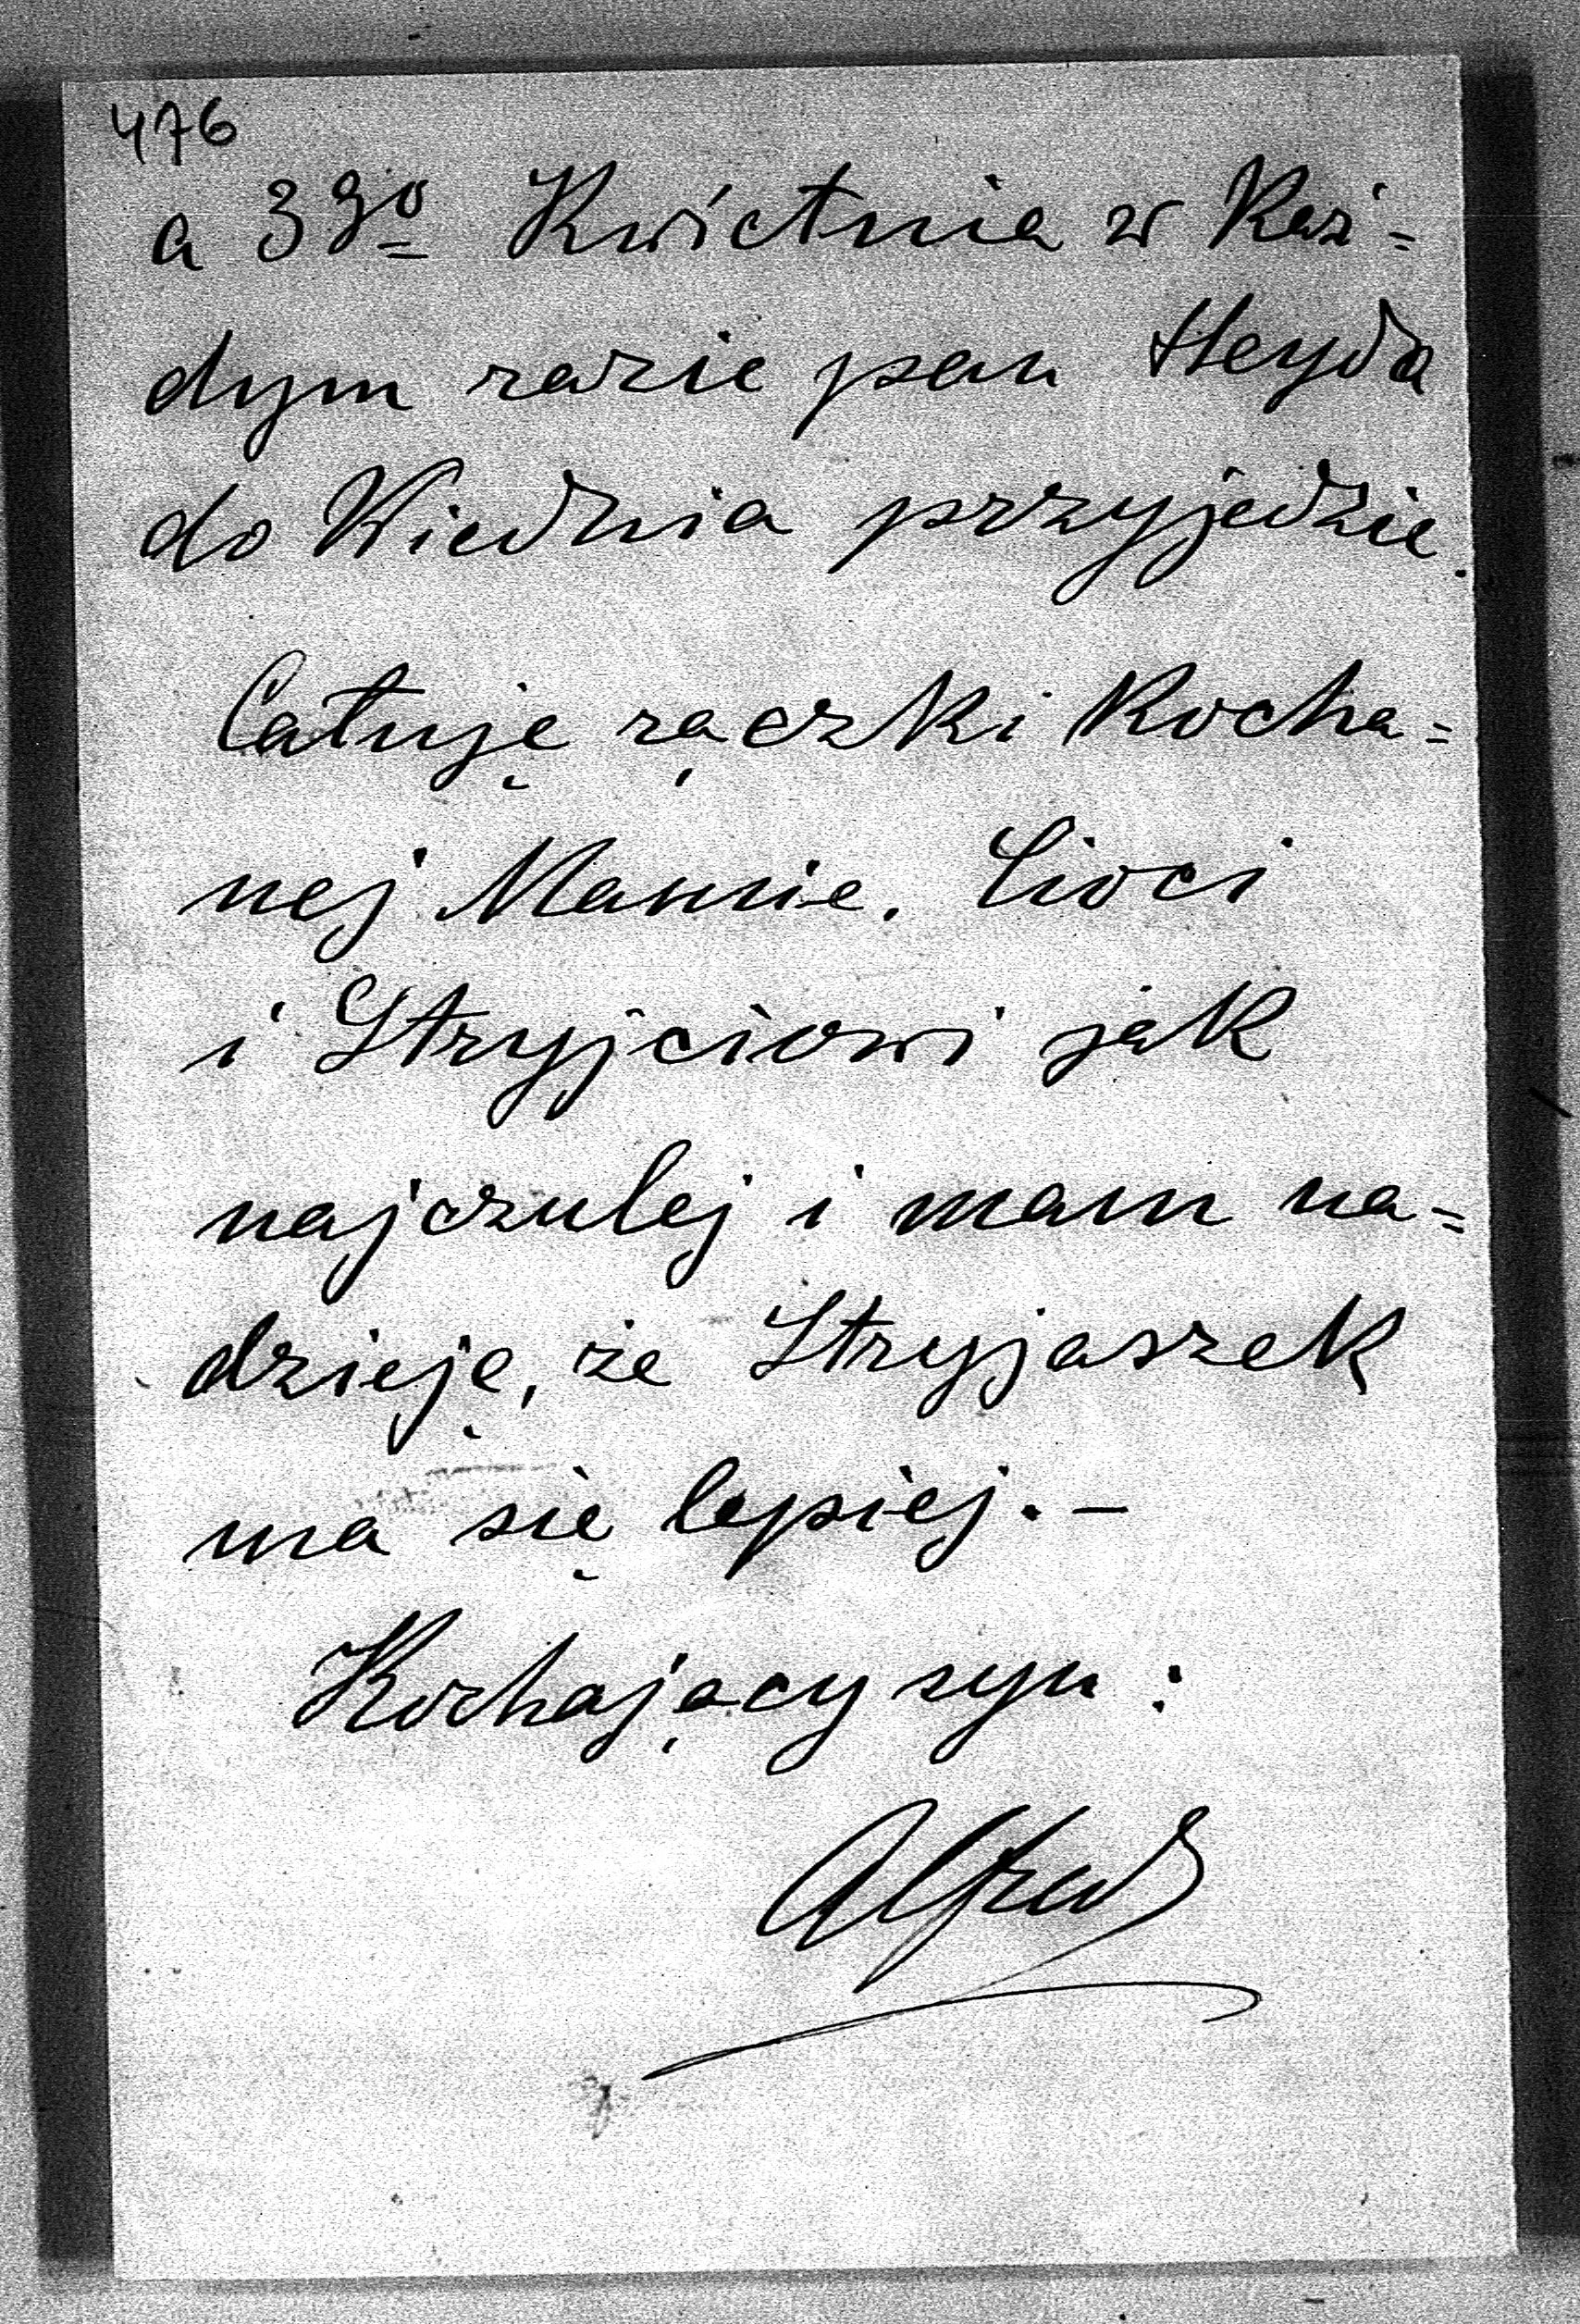 476
a 3go Kwietnia w Każ=
dym razie pan Heyda
do Wiednia przyjedzie.
Całuję rączki Kocha=
nej Mamie. Cioci
i Stryjciowi jak
najczulej i mam na=
dzieję, że Stryjaszek
ma się lepiej. –
Kochający syn:
Alfred